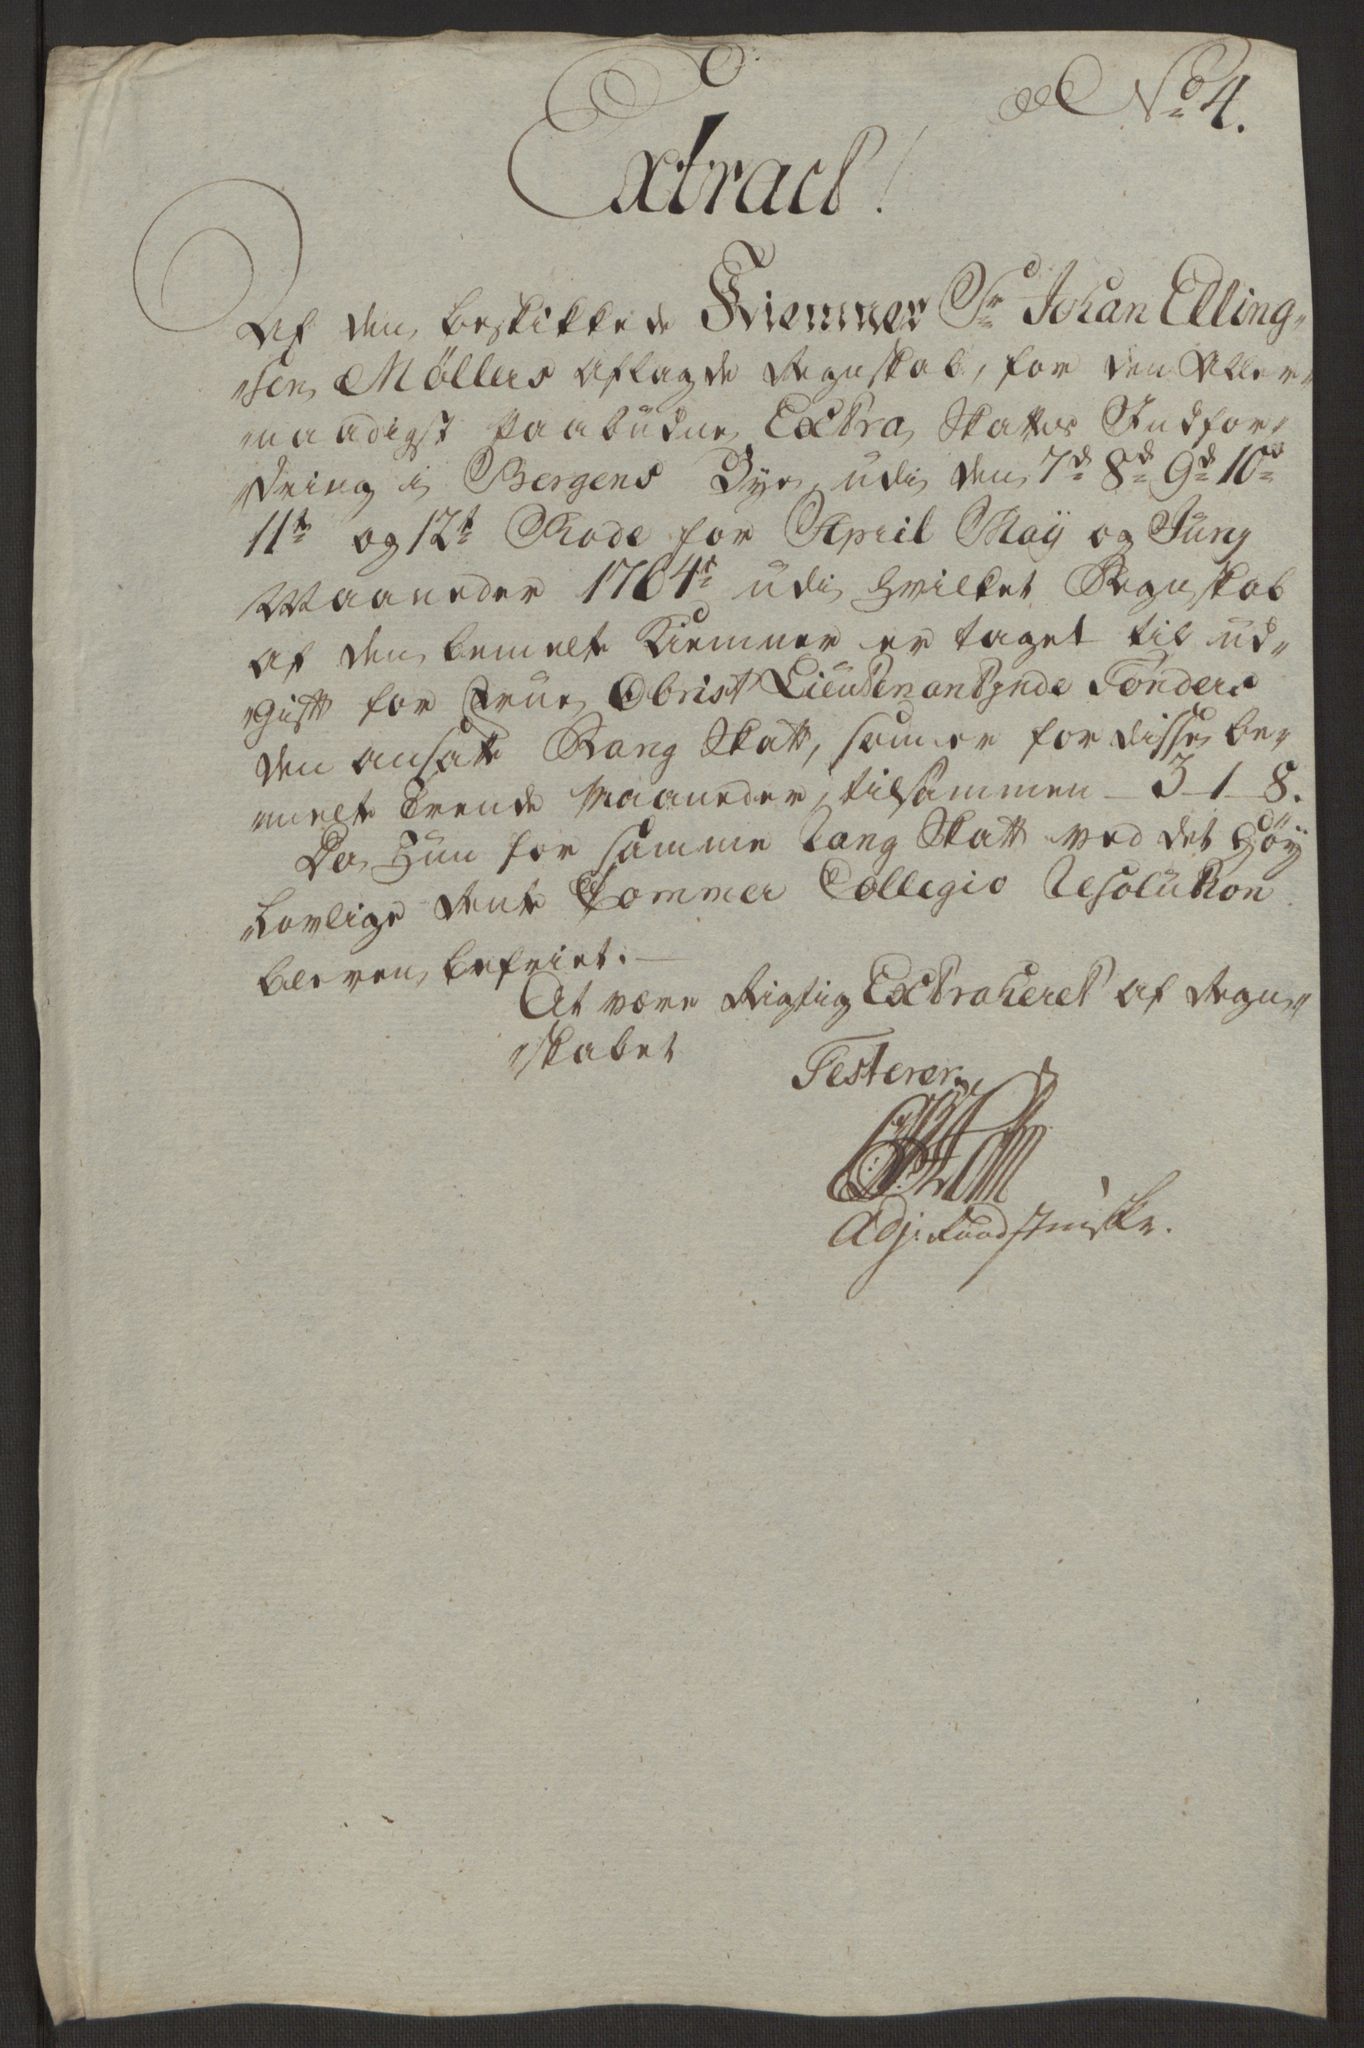 No 4.
Extract!
Af den beskikkede Kiemner Sr Johan Elling-
sen Møllers aflagde Regnskab, for den Aller-
naadigst Paabudne Extra Skattes Indfor-
dring i Bergens Bye, udi den 7de 8de 9de 10de
11te og 12te Rode for April Maÿ og Juny
Maaneder 1764te udi hvilket Regnskab
af den bemelte Kiemner er taget til ud-
gift for Frue Obrist Lieutenantjnde Tønders
den ansatte Rang Skatt, som er for disse be-
melte Trende Maaneder, tilsammen - 3 - 1 - 8.
Da Hun for samme Rang Skatt ved det Høÿ
Lovlige Rente Kammer Collegio Resolution
bleven befriet. —
At være Rigtig Extraheret af Regn-
skabet
Testerer.